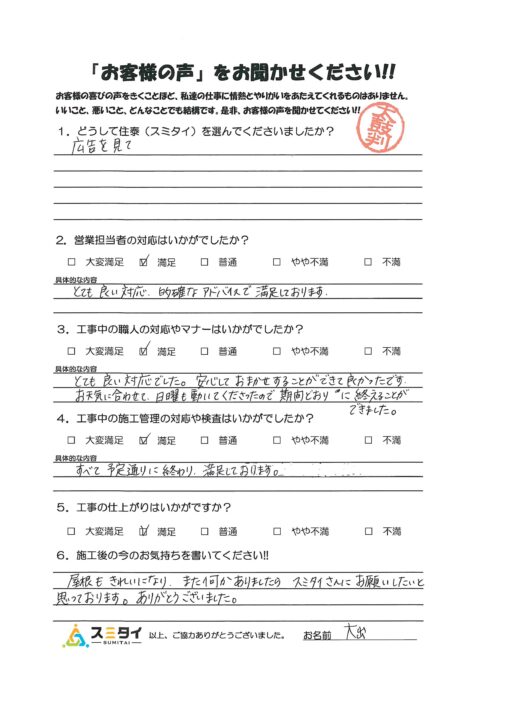 「お客様の声」をお聞かせください!!
お客様の喜びの声をきくことほど、私達の仕事に情熱とやりがいをあたえてくれるものはありません。
いいこと、悪いこと、どんなことでも結構です。是非、お客様の声を聞かせてください!!
太鼓判
1．どうして住泰（スミタイ）を選んでくださいましたか？
広告を見て
2．営業担当者の対応はいかがでしたか？
□ 大変満足 ☑ 満足 □ 普通 □ やや不満 □ 不満
具体的な内容
とても良い対応、的確なアドバイスで満足しております。
3．工事中の職人の対応やマナーはいかがでしたか？
□ 大変満足 ☑ 満足 □ 普通 □ やや不満 □ 不満
具体的な内容
とても良い対応でした。安心しておまかせすることができて良かったです
お天気に合わせて、日曜も動いてくださったので期間どおりに終えることが
できました。
4．工事中の施工管理の対応や検査はいかがでしたか？
□ 大変満足 ☑ 満足 □ 普通 □ やや不満 □ 不満
具体的な内容
すべて予定通りに終わり、満足しております。
5．工事の仕上がりはいかがですか？
□ 大変満足 ☑ 満足 □ 普通 □ やや不満 □ 不満
6．施工後の今のお気持ちを書いてください!!
屋根もきれいになり、また何かありましたらスミタイさんにお願いしたいと
思っております。ありがとうございました。
スミタイ 以上、ご協力ありがとうございました。 お名前
SUMITAI